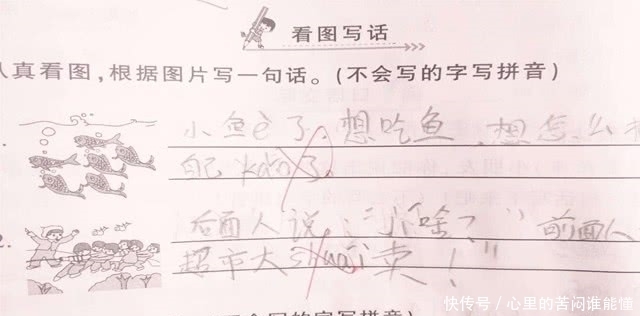 看图写话
认真看图,根据图片写一句话。(不会写的字写拼音)
小鱼è了,想吃鱼,想怎么把
自己kǎo了。
2.
后面人说:“小啥?”前面人
超市大shuǎi卖!”
快传号/心里的苦闷谁能懂